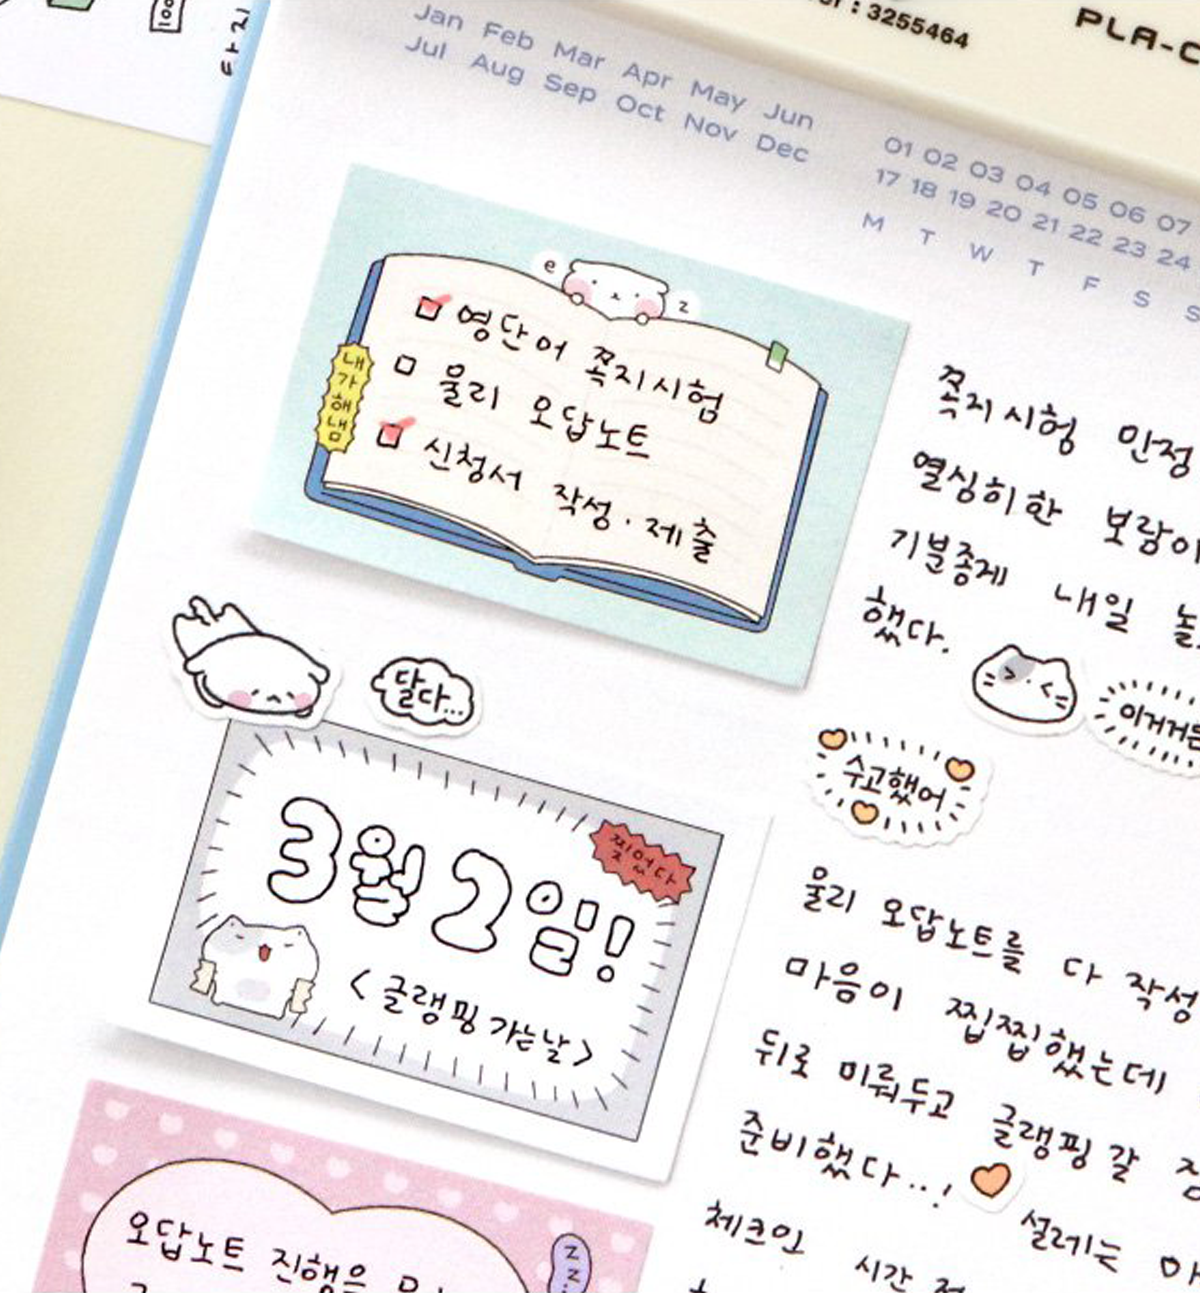 100
3255464
PLA-C
Jan Feb Mar Apr May Jun
Jul Aug Sep Oct Nov Dec
01 02 03 04 05 06 07
17 18 19 20 21 22 23 24
M T W T F S S
e z
영단어 쪽지시험
물리 오답노트
신청서 작성·제출
내가 해냄
쪽지시험 만점
열심히한 보람이
기분좋게 내일 놀
했다.
달다...
이거거든
수고했어
찢었다
3월 2일!
<글램핑 가는날>
물리 오답노트를 다 작성
마음이 찝찝했는데
뒤로 미뤄두고 글램핑 갈
준비했다..!
설레는 마
체크인 시간
오답노트 진행은
z z